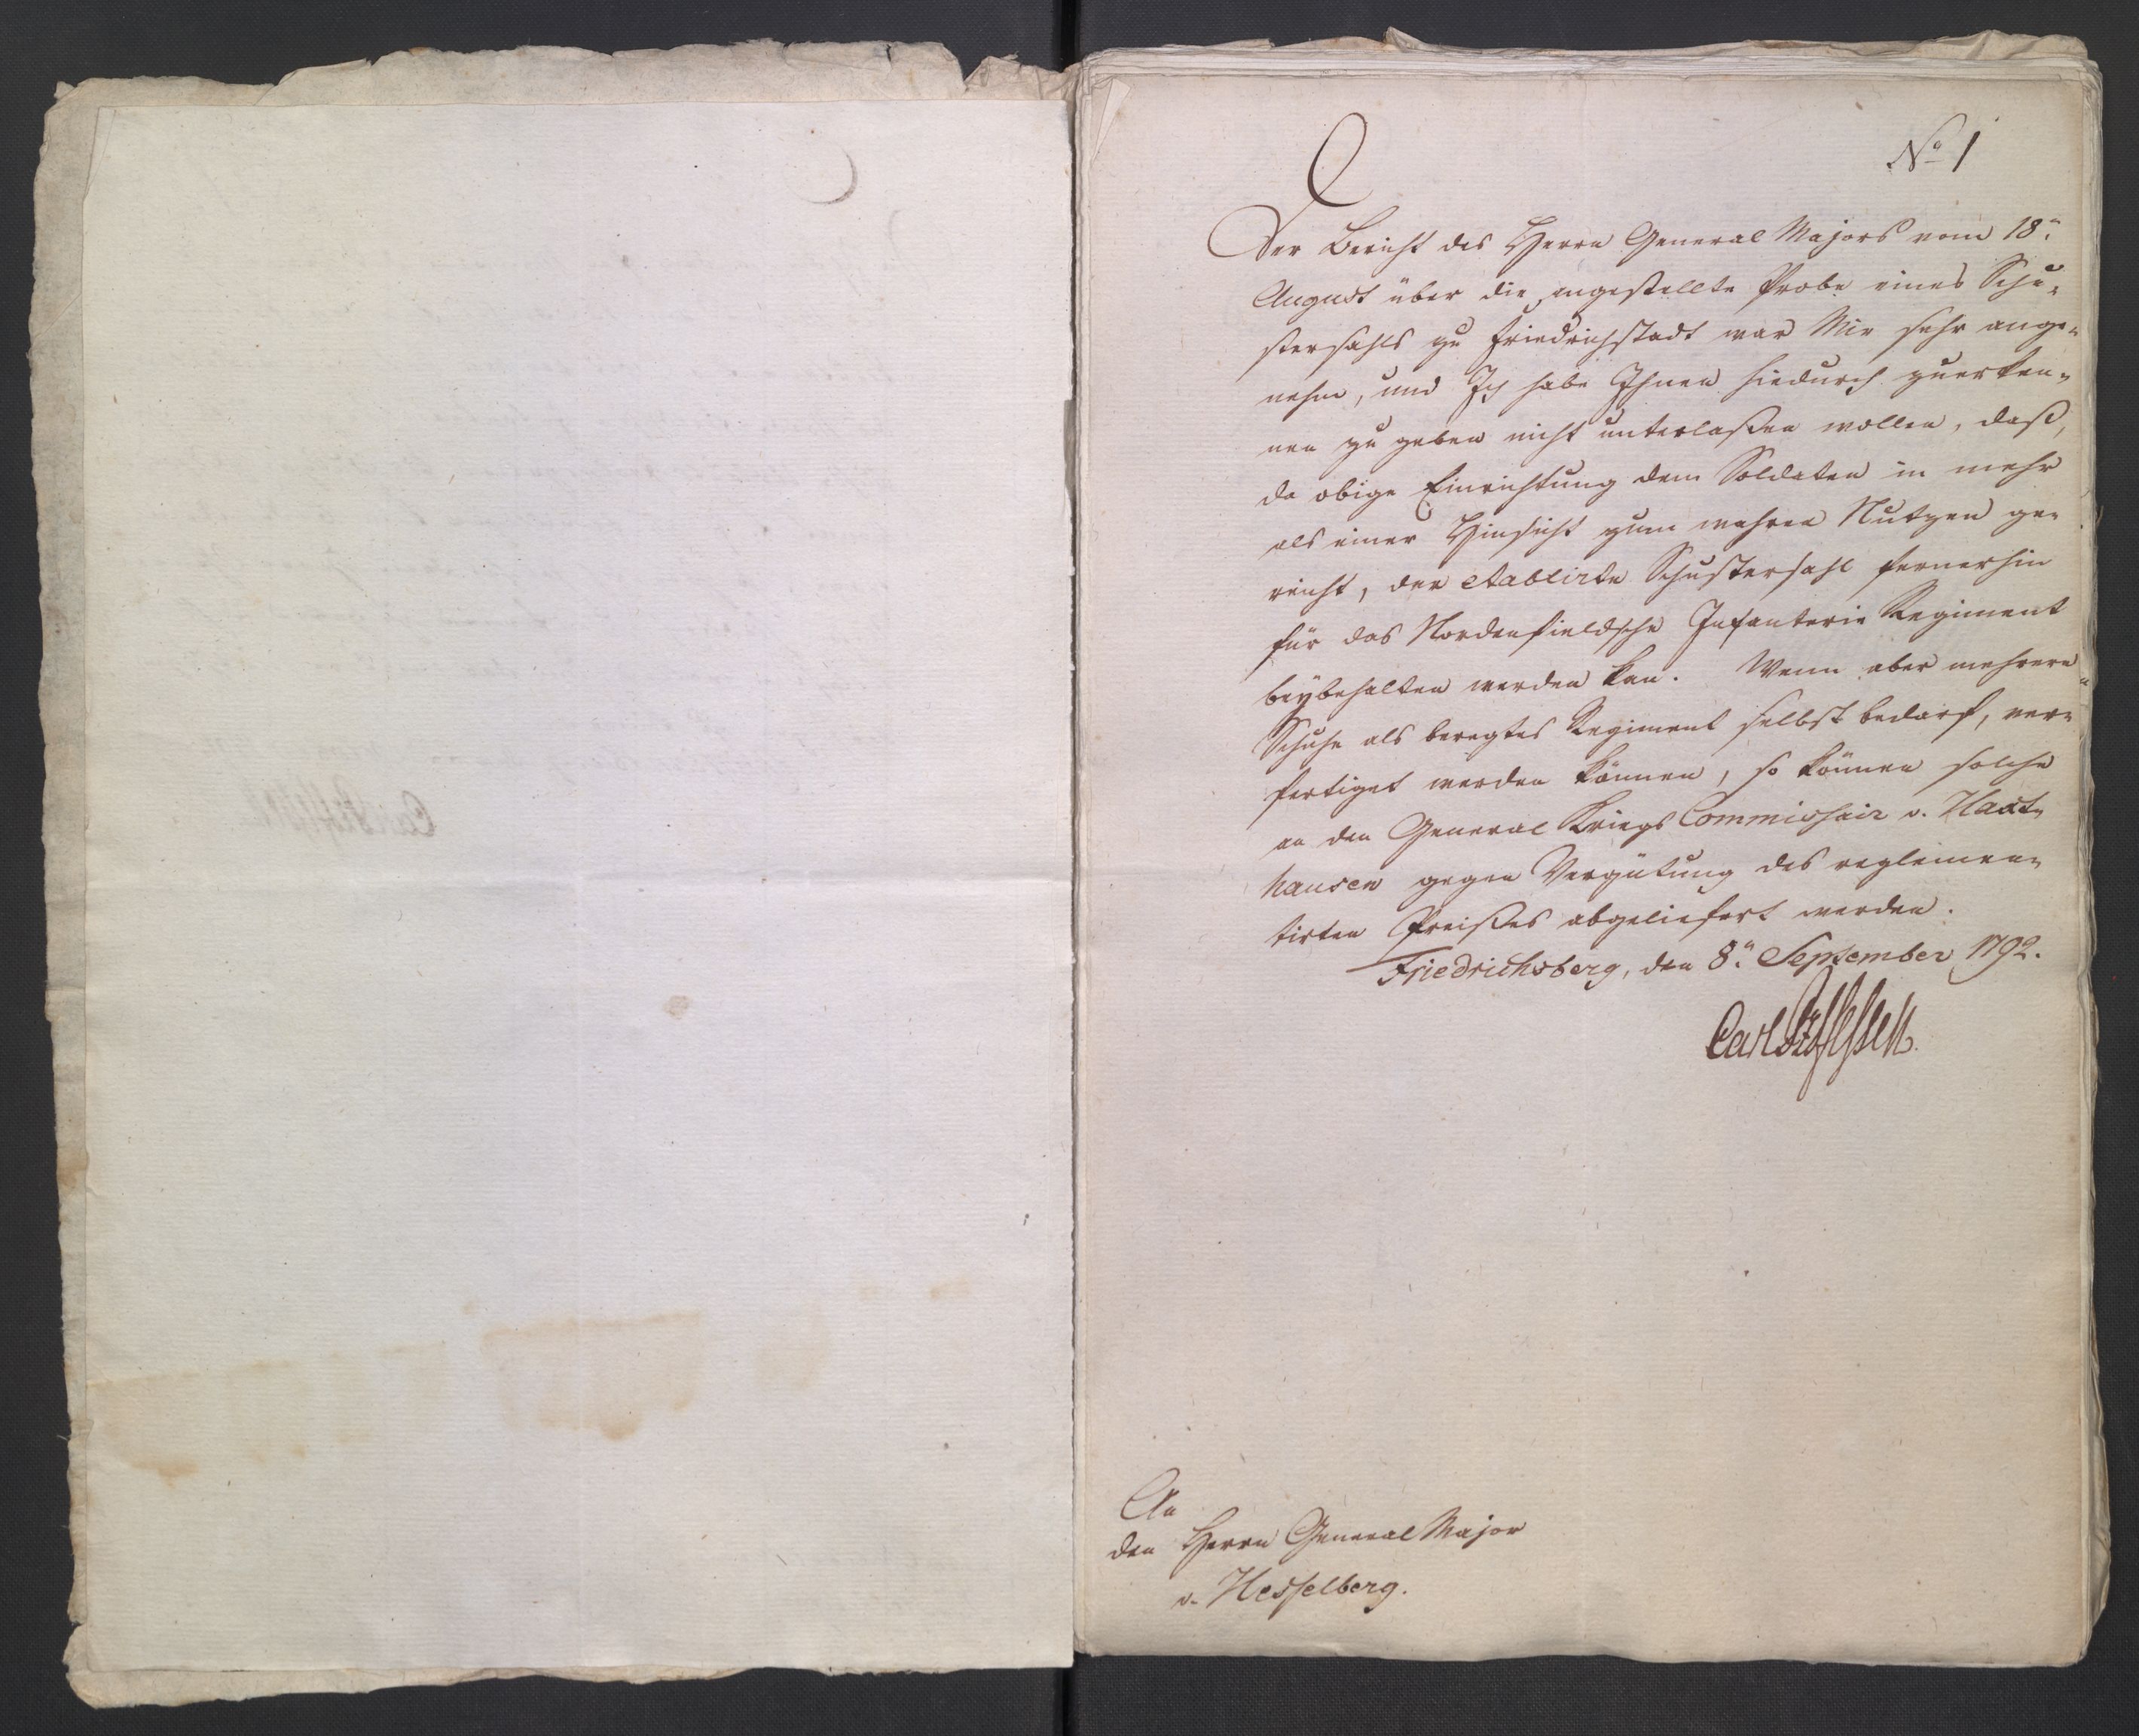 No 1
Der Bericht des Herrn General Majors vom 18.
August über die angestellte Probe eines Schu-
stersahls zu Friedrichstadt war Mir sehr ange-
nehm, und Ich habe Ihnen hiedurch zuerken-
nen zu geben nicht unterlaßen wollen, daß,
da obige Einrichtung dem Soldaten in mehr
als einer Hinsicht zum wahren Nutzen ge-
reicht, der etablirte Schustersahl fernerhin
für das Nordenfieldsche Infanterie Regiment
beybehalten werden kan. Wenn aber mehrere
Schuhe als beregtes Regiment selbst bedarf, ver-
fertiget werden können, so können solche
an den General Kriegs Commissair v. Haxt-
hausen gegen Vergütung des reglemen-
tirten Preißes abgeliefert werden.
Friedrichsberg, den 8. September 1792.
Carl PzHessen.
An
den Herrn General Major
v. Hesselberg.